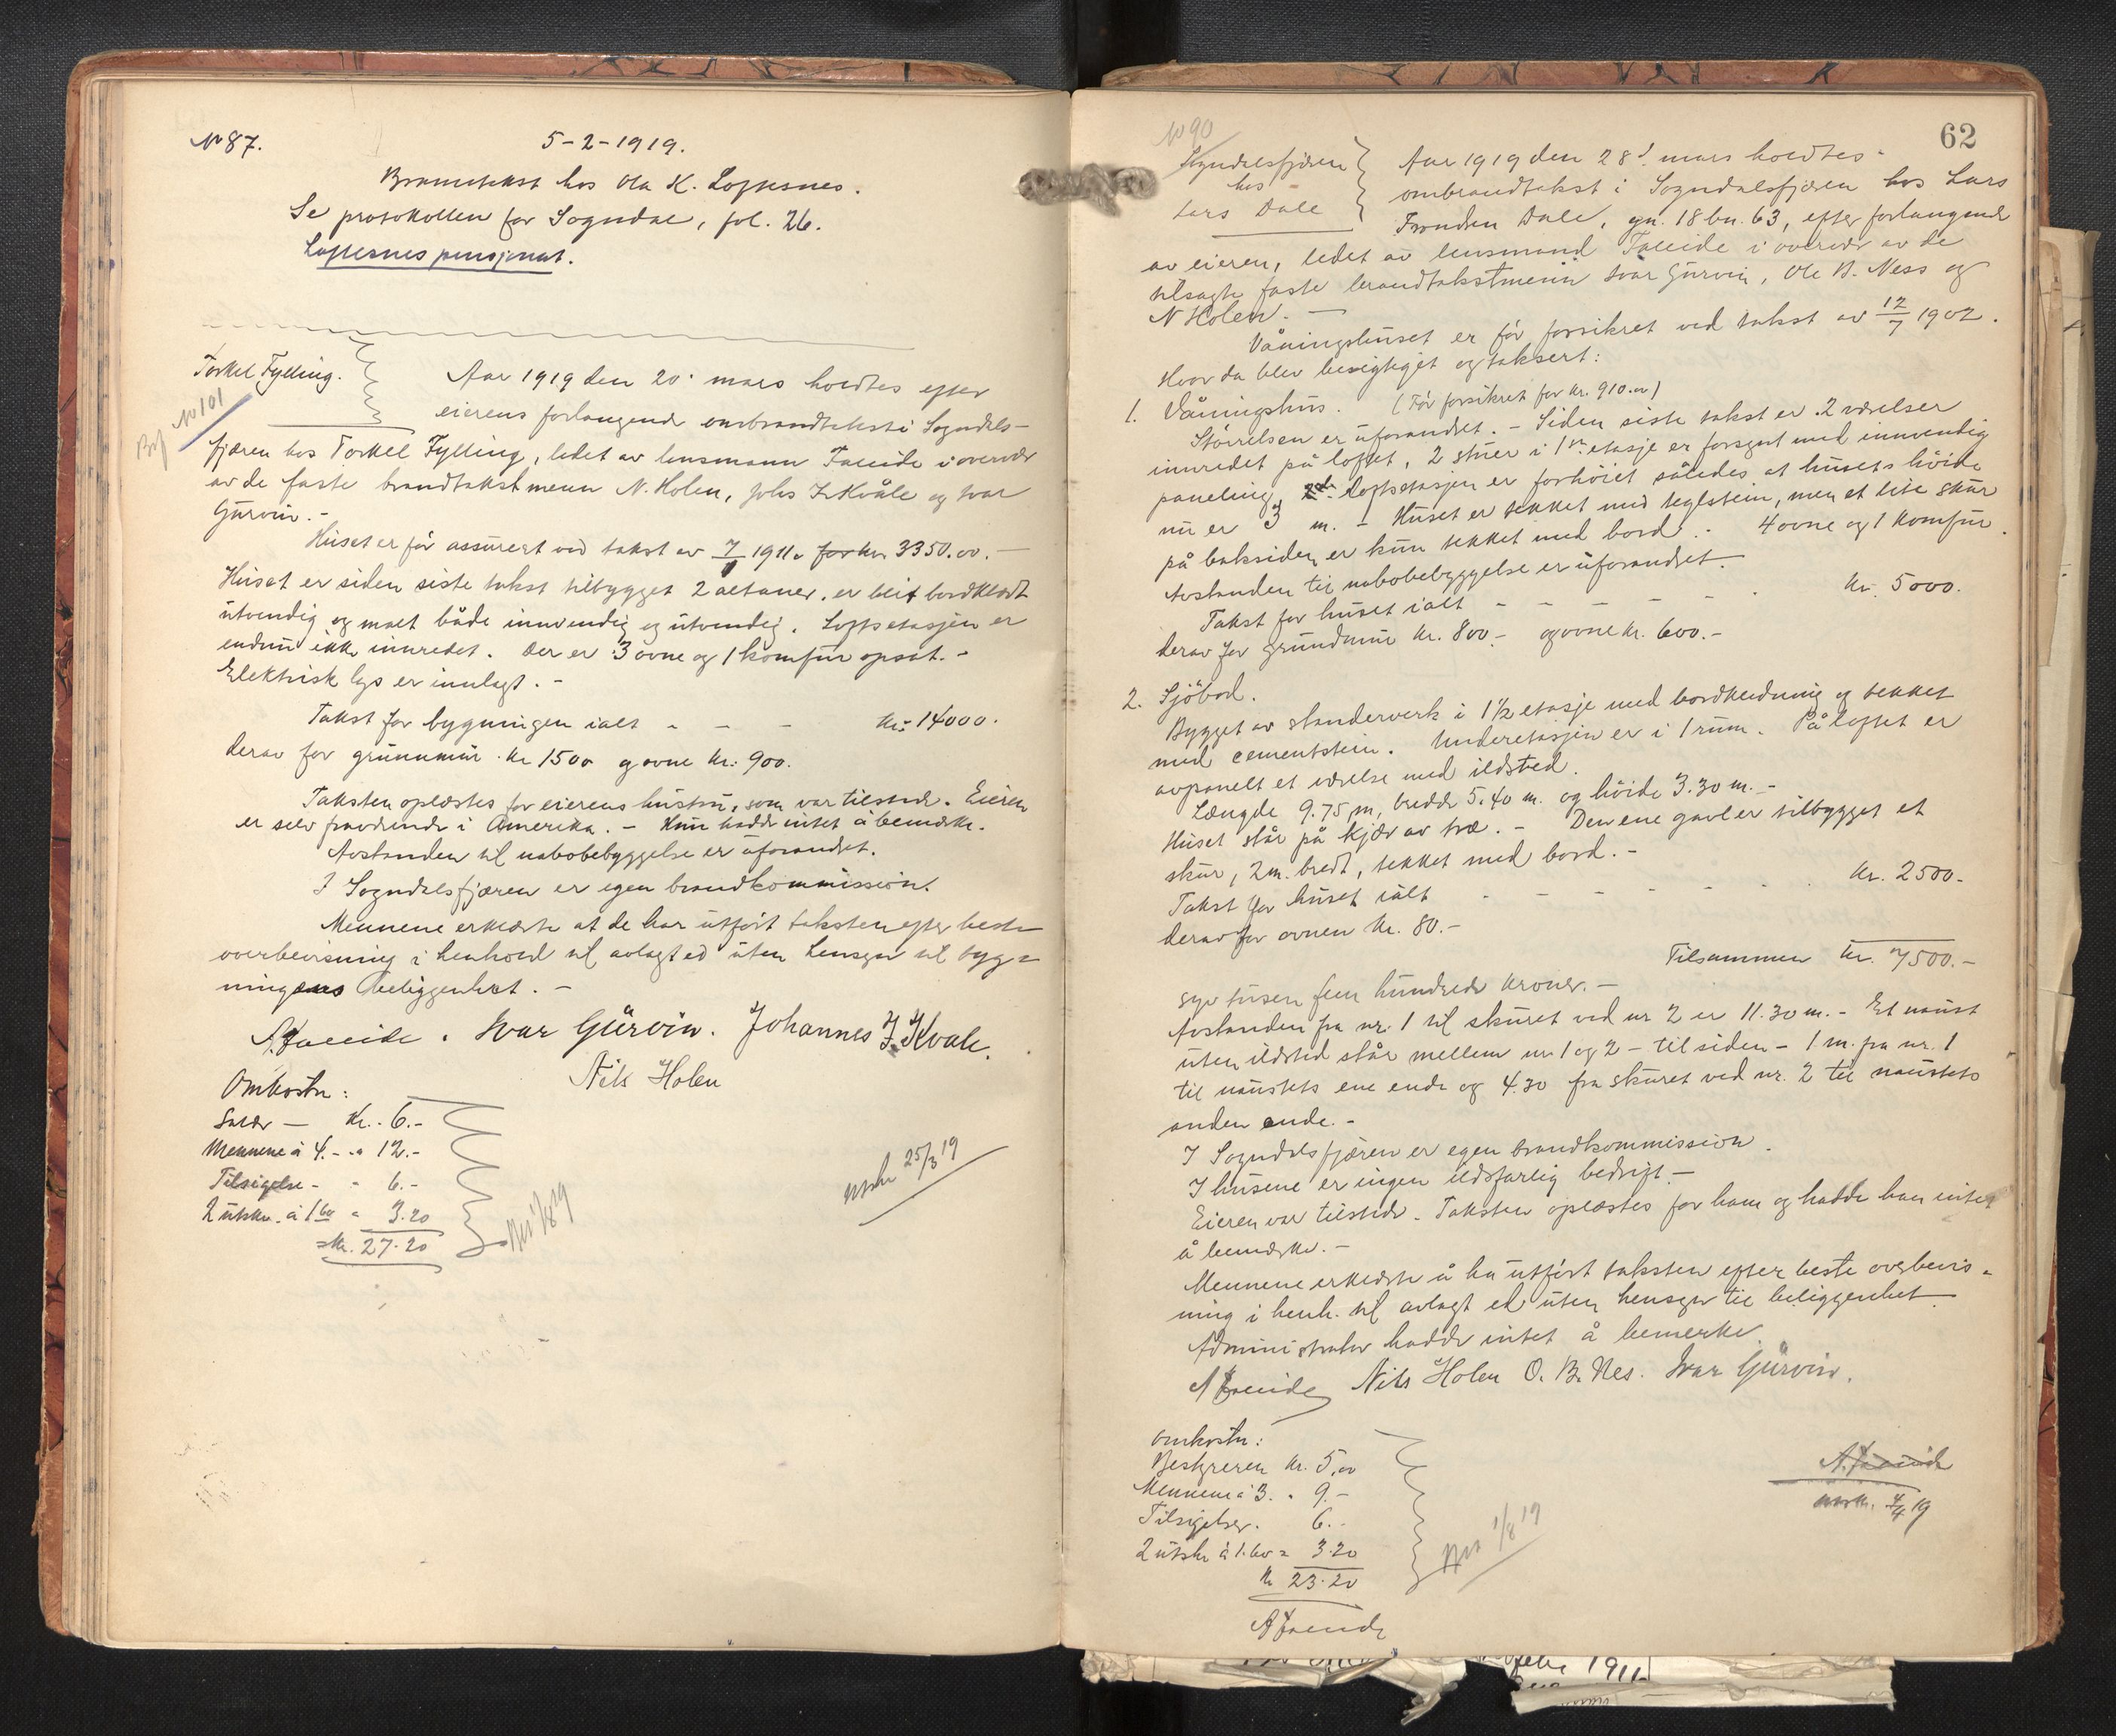 № 87.
5-2-1919.
Branntakst hos Ola K. Loftesnes.
Se protokollen for Sogndal, fol. 26.
Loftesnes pensjonat.
Torkel Fylling.
№ 101
Aar 1919 den 20. mars holdtes efter
eierens forlangende ombrandtakst i Sogndals-
fjæren hos Torkel Fylling, ledet av lensmann Faleide i overvær
av de faste brandtakstmenn N. Holen, Johs J. Kvåle og Ivar
Gurvin. -
Huset er før assurert ved takst av 1911 for kr 3350.00. -
Huset er siden siste takst tilbygget 2 altaner, er blit bordklædt
utvendig og malt både innvendig og utvendig. Loftsetasjen er
endnu ikke innredet. Der er 3 ovne og 1 komfur opsat. -
Elektrisk lys er innlagt. -
Takst for bygningen ialt - - - kr. 14000.
derav for grunnmur kr 1500 og ovne kr. 900.
Taksten oplæstes for eierens hustru, som var tilstede. Eieren
er selv fraværende i Amerika. - Hun hadde intet å bemerke.
Avstanden til nabobebyggelse er uforandret.
I Sogndalsfjæren er egen brandkommission.
Mennene erklærte at de har utført taksten efter beste
overbevisning i henhold til avlagt ed uten hensyn til byg=
ningens beliggenhet. -
A Faleide. Ivar Gurvin. Johannes J. Kvale.
Nils Holen
Omkostn:
Salær - Kr. 6.-
Mennene á 4.- " 12.-
Tilsigelse - " 6.-
2 utskr. á 1 60 " 3.20
= Kr. 27.20
1/8 19
Utskr 25/3 19
62
№ 90
Sogndalsfjæren
hos
Lars Dale
Aar 1919 den 28d. mars holdtes
ombrandtakst i Sogndalsfjæren hos Lars
Tronden Dale, gn. 18 bn. 63, efter forlangende
av eieren, ledet av lensmand Faleide i overvær av de
tilsagte faste brandtakstmenn Ivar Gurvin, Ole B. Ness og
N Holen. -
Våningshuset er før forsikret ved takst av 12/7 1902.
Hvor da blev besigtiget og taksert:
1. Våningshus. (Før forsikret for kr. 910.00)
Størrelsen er uforandret. - Siden siste takst er 2 værelser
innredet på loftet, 2 stuer i 1ste etasje er forsynt med innvendig
paneling, loftsetasjen er forhøiet således at husets høide
nu er 3 m. - Huset er tekket med teglstein, men et lite skur
på baksiden er kun tekket med bord. - 4 ovne og 1 komfur.
Avstanden til nabobebyggelse er uforandret. -
Takst for huset ialt - - - - - kr. 5000.
derav for grundmur kr. 800.- og ovne kr. 600.-
2. Sjöbod.
Bygget av standerverk i 1½ etasje med bordkledning og tekket
med cementstein. Underetasjen er i 1 rum. På loftet er
avpanelt et værelse med ildsted.
Længde 9.75 m, bredde 5.40 m. og høide 3.30 m. -
Huset står på kjær av træ. - Den ene gavl er tilbygget et
skur, 2 m. bredt, tekket med bord. -
Takst for huset ialt - - - - - kr. 2500.
derav for ovnen kr. 80.-
Tilsammen kr. 7500.-
syv tusen fem hundrede kroner. -
Avstanden fra nr. 1 til skuret ved nr 2 er 11.30 m. - Et naust
uten ildsted står mellem nr. 1 og 2 - til siden - 1 m. fra nr. 1
til naustets ene ende og 4.30 fra skuret ved nr. 2 til naustets
anden ende. -
I Sogndalsfjæren er egen brandkommission.
I husene er ingen ildsfarlig bedrift. -
Eieren var tilstede. Taksten oplæstes for ham og hadde han intet
å bemærke. -
Mennene erklærte å ha utført taksten efter beste overbevis=
ning i henh. til avlagt ed uten hensyn til beliggenhet.
Administrator hadde intet å bemerke.
A Faleide Nils Holen O. B. Nes. Ivar Gurvin.
Omkostn:
Bestyreren kr. 5,00
Mennene á 3. " 9.-
Tilsigelser. 6.-
2 utskr á 1.60 = 3.20
Kr 23.20
A Faleide
1/8 19
A. Faleide
Utskr. 4/4 19
1911